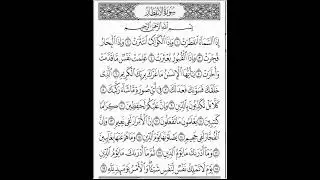 سُورَةُ الانفِطَارِ
بِسْمِ اللَّهِ الرَّحْمَٰنِ الرَّحِيمِ
إِذَا السَّمَاءُ انفَطَرَتْ ۝ وَإِذَا الْكَوَاكِبُ انتَثَرَتْ ۝ وَإِذَا الْبِحَارُ
فُجِّرَتْ ۝ وَإِذَا الْقُبُورُ بُعْثِرَتْ ۝ عَلِمَتْ نَفْسٌ مَّا قَدَّمَتْ
وَأَخَّرَتْ ۝ يَا أَيُّهَا الْإِنسَانُ مَا غَرَّكَ بِرَبِّكَ الْكَرِيمِ ۝ الَّذِي
خَلَقَكَ فَسَوَّاكَ فَعَدَلَكَ ۝ فِي أَيِّ صُورَةٍ مَّا شَاءَ رَكَّبَكَ ۝
كَلَّا بَلْ تُكَذِّبُونَ بِالدِّينِ ۝ وَإِنَّ عَلَيْكُمْ لَحَافِظِينَ ۝
كِرَامًا كَاتِبِينَ ۝ يَعْلَمُونَ مَا تَفْعَلُونَ ۝ إِنَّ الْأَبْرَارَ لَفِي نَعِيمٍ ۝ وَإِنَّ
الْفُجَّارَ لَفِي جَحِيمٍ ۝ يَصْلَوْنَهَا يَوْمَ الدِّينِ ۝ وَمَا هُمْ عَنْهَا بِغَائِبِينَ
۝ وَمَا أَدْرَاكَ مَا يَوْمُ الدِّينِ ۝ ثُمَّ مَا أَدْرَاكَ مَا يَوْمُ الدِّينِ
۝ يَوْمَ لَا تَمْلِكُ نَفْسٌ لِّنَفْسٍ شَيْئًا وَالْأَمْرُ يَوْمَئِذٍ لِّلَّهِ ۝